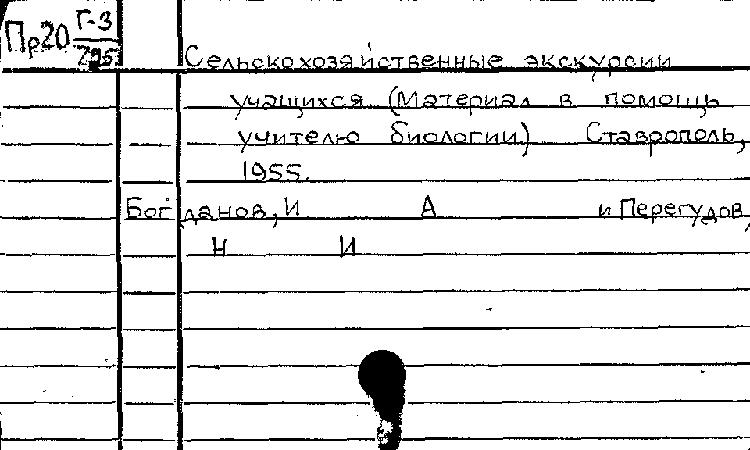 Пр20 Г-3
295
Сельскохозяйственные экскурсии
учащихся (Материал в помощь
учителю биологии) Ставрополь,
1955.
Богданов, И А и Перегудов,
Н И